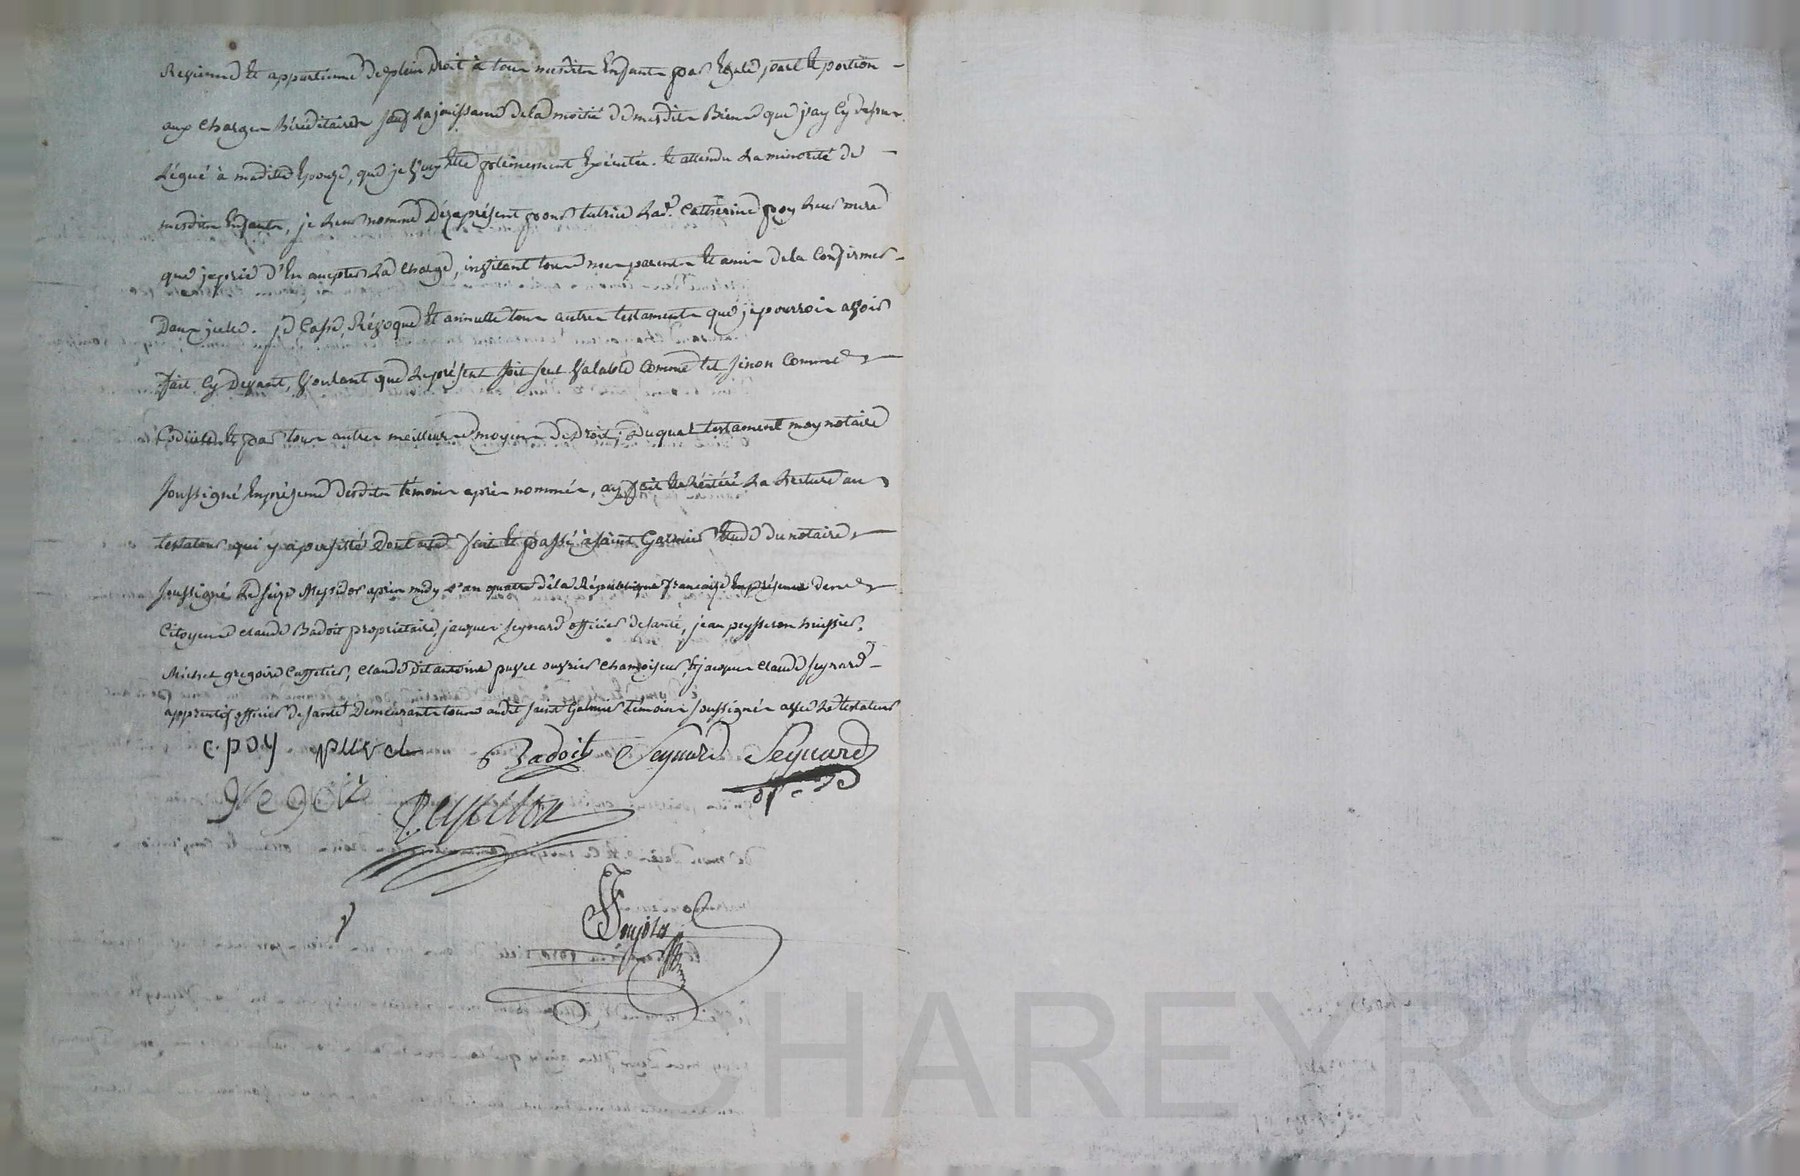 Revienne et appartienne de plein droit à tous mesdits Enfants par Egale part et portion
aux charges héréditaires sauf la jouissance de la moitié de mesdits Biens que j'ay cy dessus
Légué à madite Epouze, que je veux être pleinement Exécutée. Et attendu la minorité de
mesdits Enfants, je leur nomme dèzaprésent pour tutrice lad.e Catherine poy leur mere
que je prie d'En accepter la charge, invitant tous mes parents et amis de la confirmer
dans icelle. je Casse, Révoque et annulle tous autres testaments que je pourrois avoir
fait cy devant, voulant que le présent soit seul valable comme tel, sinon comme
Codicile et par tous autres meilleurs moyens de droit; duquel testament moy notaire
soussigné En présence desdits témoins après nommés, ay fait et réitéré la lecture au
testateur qui y a persisté dont acte fait et passé à saint Galmier Etude du notaire
soussigné le seize Messidor après midy l'an quatre de la République française En présence des
Citoyens claude Badoit propriétaire, jacques seynard officier de santé, jean peysselon huissier,
Michel gregoire Caffetier, claude dit antoine puvel ouvrier chamoiseur, & jacques claude seynard
apprentif officier de santé Demeurants tous audit saint Galmier témoins soussignés avec le testateur
c. poy puvel Badoit Seynard Seynard
of. de
Peysselon
CHAREYRON